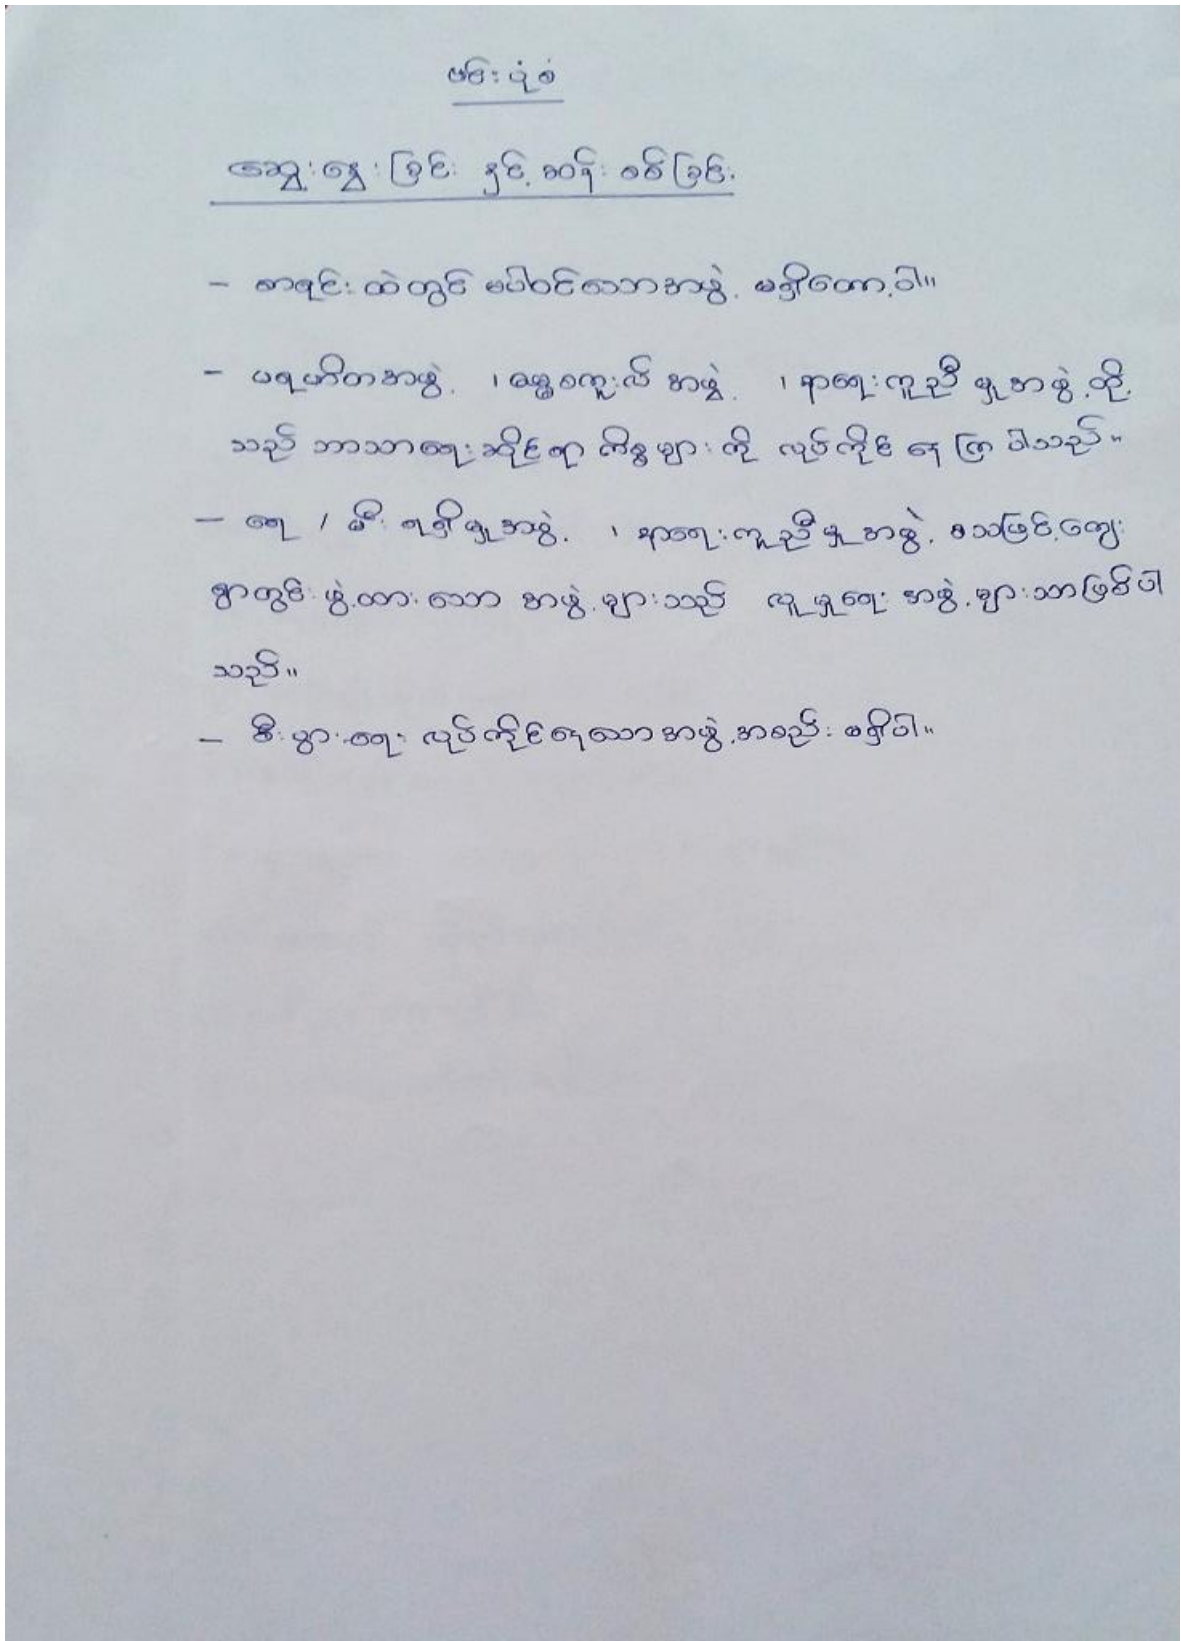 ဗင်းပုံစံ
ဆွေးနွေးခြင်း နှင့် ဆန်းစစ်ခြင်း
- စာရင်းထဲတွင် မပါဝင်သောအဖွဲ့ မရှိတော့ပါ။
- ပရဟိတအဖွဲ့ ၊ ဓမ္မစကူးလ် အဖွဲ့ ၊ နာရေးကူညီမှုအဖွဲ့တို့
သည် ဘာသာရေးဆိုင်ရာ ကိစ္စများကို လုပ်ကိုင်နေကြပါသည်။
- ရေ / မီး ရရှိမှုအဖွဲ့ ၊ နာရေးကူညီမှုအဖွဲ့ စသဖြင့် ကျေး
ရွာတွင်းဖွဲ့ထားသော အဖွဲ့များသည် လူမှုရေး အဖွဲ့များသာဖြစ်ပါ
သည်။
- စီးပွားရေး လုပ်ကိုင်နေသောအဖွဲ့အစည်း မရှိပါ။